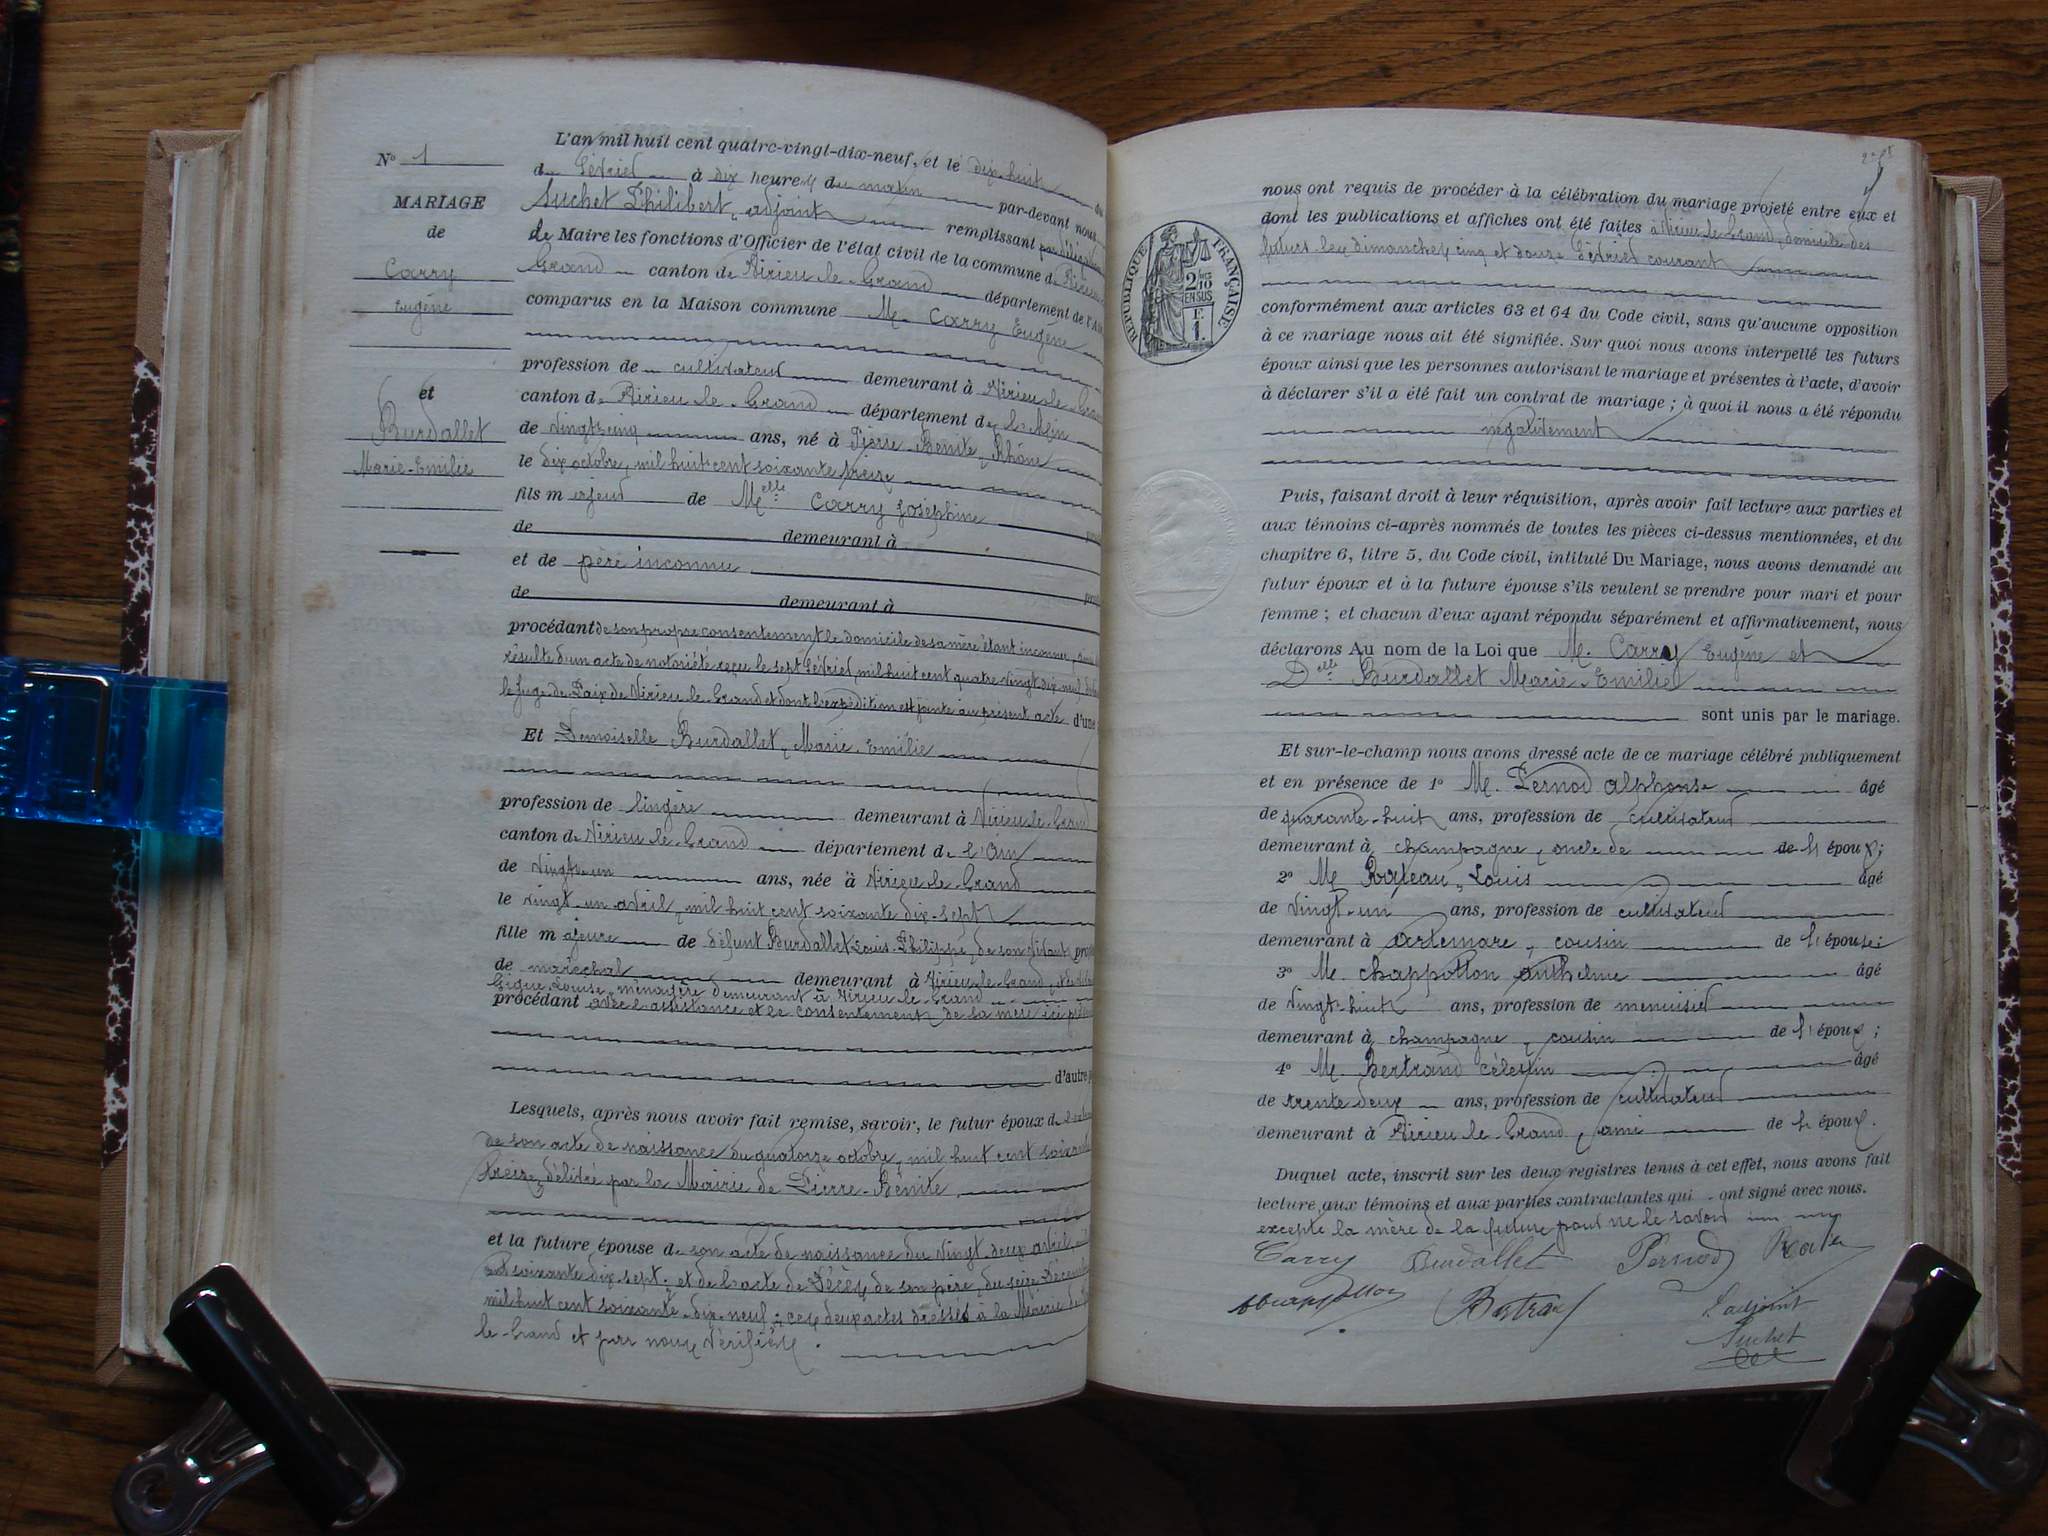 N° 1
MARIAGE
de
Carry
Eugène
et
Burdallet
Marie-Emilie
L'an mil huit cent quatre-vingt-dix-neuf, et le dix-huit
du Février à dix heures du matin par-devant nous
Suchet Philibert, adjoint remplissant par délégation
de Maire les fonctions d'Officier de l'état civil de la commune de Virieu-le-
Grand canton de Virieu-le-Grand département de l'Ain
comparus en la Maison commune M. Carry Eugène
profession de cultivateur demeurant à Virieu-le-Grand
canton de Virieu-le-Grand département de l'Ain
de vingt-cinq ans, né à Pierre-Bénite, Rhône
le dix octobre, mil huit cent soixante treize
fils majeur de Melle Carry Joséphine
de demeurant à
et de père inconnu
de demeurant à
procédant de son propre consentement le domicile de sa mère étant inconnu,
résulte d'un acte de notoriété reçu le sept Février, mil huit cent quatre vingt dix neuf
le Juge de Paix de Virieu-le-Grand et dont l'expédition est jointe au présent acte d'une
Et Demoiselle Burdallet, Marie-Emilie
profession de lingère demeurant à Virieu-le-Grand
canton de Virieu-le-Grand département de l'Ain
de vingt-un ans, née à Virieu-le-Grand
le vingt-un avril, mil huit cent soixante dix-sept
fille majeure de défunt Burdallet Louis-Philippe, de son vivant
de maréchal demeurant à Virieu-le-Grand,
Louise, ménagère demeurant à Virieu-le-Grand
procédant avec l'assistance et le consentement de sa mère ici
d'autre
Lesquels, après nous avoir fait remise, savoir, le futur époux de
de son acte de naissance du quatorze octobre, mil huit cent soixante
treize, délivré par la Mairie de Pierre-Bénite,
et la future épouse de son acte de naissance du vingt-deux avril, mil
soixante dix-sept, et de l'acte de Décès de son père, du seize Décembre
mil huit cent soixante-dix-neuf; ces deux actes dressés à la Mairie de
le-Grand et par nous vérifiés.
RÉPUBLIQUE FRANÇAISE
2/10
EN SUS
F.
1.
nous ont requis de procéder à la célébration du mariage projeté entre eux et
dont les publications et affiches ont été faites à Virieu-le-Grand, domicile des
futurs les dimanches cinq et douze Février courant
conformément aux articles 63 et 64 du Code civil, sans qu'aucune opposition
à ce mariage nous ait été signifiée. Sur quoi nous avons interpellé les futurs
époux ainsi que les personnes autorisant le mariage et présentes à l'acte, d'avoir
à déclarer s'il a été fait un contrat de mariage ; à quoi il nous a été répondu
négativement
Puis, faisant droit à leur réquisition, après avoir fait lecture aux parties et
aux témoins ci-après nommés de toutes les pièces ci-dessus mentionnées, et du
chapitre 6, titre 5, du Code civil, intitulé Du Mariage, nous avons demandé au
futur époux et à la future épouse s'ils veulent se prendre pour mari et pour
femme ; et chacun d'eux ayant répondu séparément et affirmativement, nous
déclarons Au nom de la Loi que M. Carry Eugène et
Delle Burdallet Marie-Emilie
sont unis par le mariage.
Et sur-le-champ nous avons dressé acte de ce mariage célébré publiquement
et en présence de 1° M. Pernod Alphonse âgé
de quarante-huit ans, profession de cultivateur
demeurant à Champagne, oncle de de l'époux;
2° M. Louis âgé
de vingt-un ans, profession de cultivateur
demeurant à Artemare, cousin de l'épouse;
3° M. Chappollon Anthelme âgé
de vingt-huit ans, profession de menuisier
demeurant à Champagne, cousin de l'époux;
4° M. Bertrand Célestin âgé
de trente deux ans, profession de cultivateur
demeurant à Virieu-le-Grand, ami de l'époux.
Duquel acte, inscrit sur les deux registres tenus à cet effet, nous avons fait
lecture aux témoins et aux parties contractantes qui ont signé avec nous.
excepté la mère de la future pour ne le savoir
Carry Burdallet Pernod
Chappollon Bertrand L'adjoint
Suchet